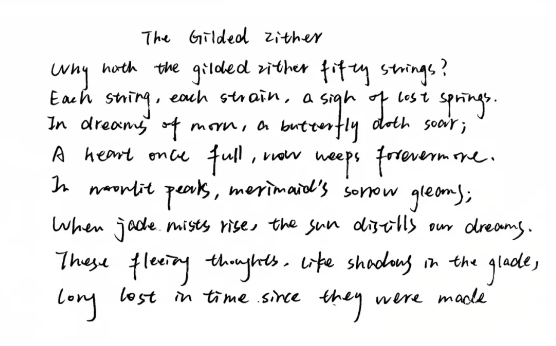 The Gilded Zither
Why hath the gilded zither fifty strings?
Each string, each strain, a sigh of lost springs.
In dreams of morn, a butterfly doth soar;
A heart once full, now weeps forevermore.
In moonlit peaks, merimaid's sorrow gleams;
When jade mists rise, the sun distills our dreams.
These fleeing thoughts. like shadows in the glade,
Long lost in time since they were made